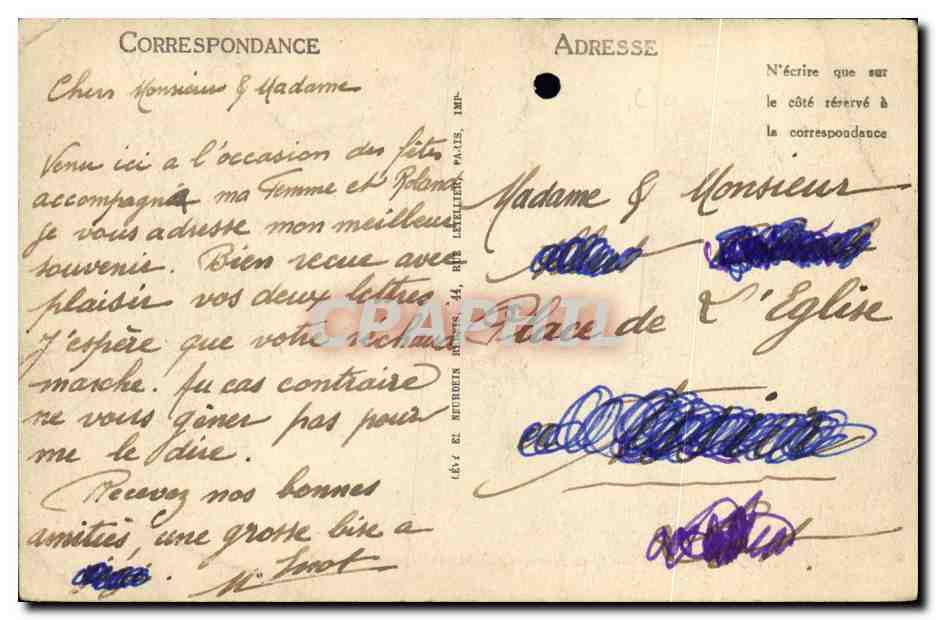 CORRESPONDANCE
Chers Monsieur & Madame
Venu ici a l'occasion des fêtes
accompagné ma Femme et Roland
je vous adresse mon meilleur
souvenir. Bien recue avec
plaisir vos deux lettres
J'espère que votre rechaud
marche. Au cas contraire
ne vous gêner pas pour
me le dire.
Recevez nos bonnes
amitiés, une grosse bise a
LÉVY ET NEURDEIN RÉUNIS, 44, RUE LETELLIER, PARIS, IMP.
ADRESSE
N'écrire que sur
le côté réservé à
la correspondance
Madame & Monsieur
Place de L'Eglise
CPAPHIL